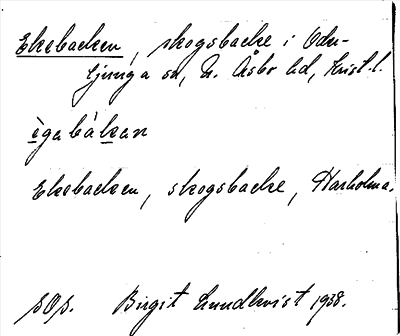 Ekebacken, skogsbacke i Odu-
ljunga sn, N. Åsbo hd, Krist. l.
ègabákan
Ekebacken, skogsbacke, Harholma.
Birgit Lundkvist 1938.